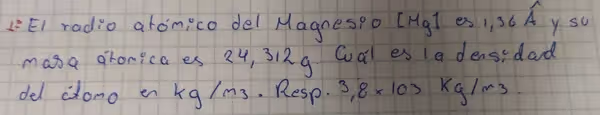 1= El radio atómico del Magnesio [Mg] es 1,36 Å y su
masa átomica es 24,312g. Cuál es la densidad
del átomo en Kg/m3. Resp. 3,8x103 Kg/m3.